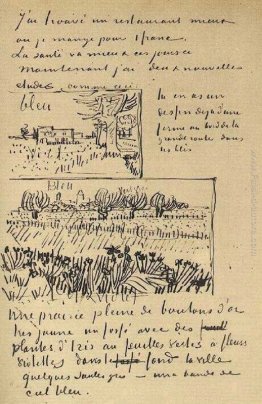 J'ai trouvé un restaurant mieux
où je mange pour 1 franc.
La santé va mieux ces jours ci
Maintenant j'ai deux nouvelles
études comme ceci
bleu
tu en as un
dessin déjà d'une
ferme au bord de la
grande route dans
les blés
Bleu
Une prairie pleine de boutons d'or
très jaune un fossé avec des
plantes d'iris aux feuilles vertes à fleurs
violettes dans le fond la ville
quelques saules gris – une bande de
ciel bleu.